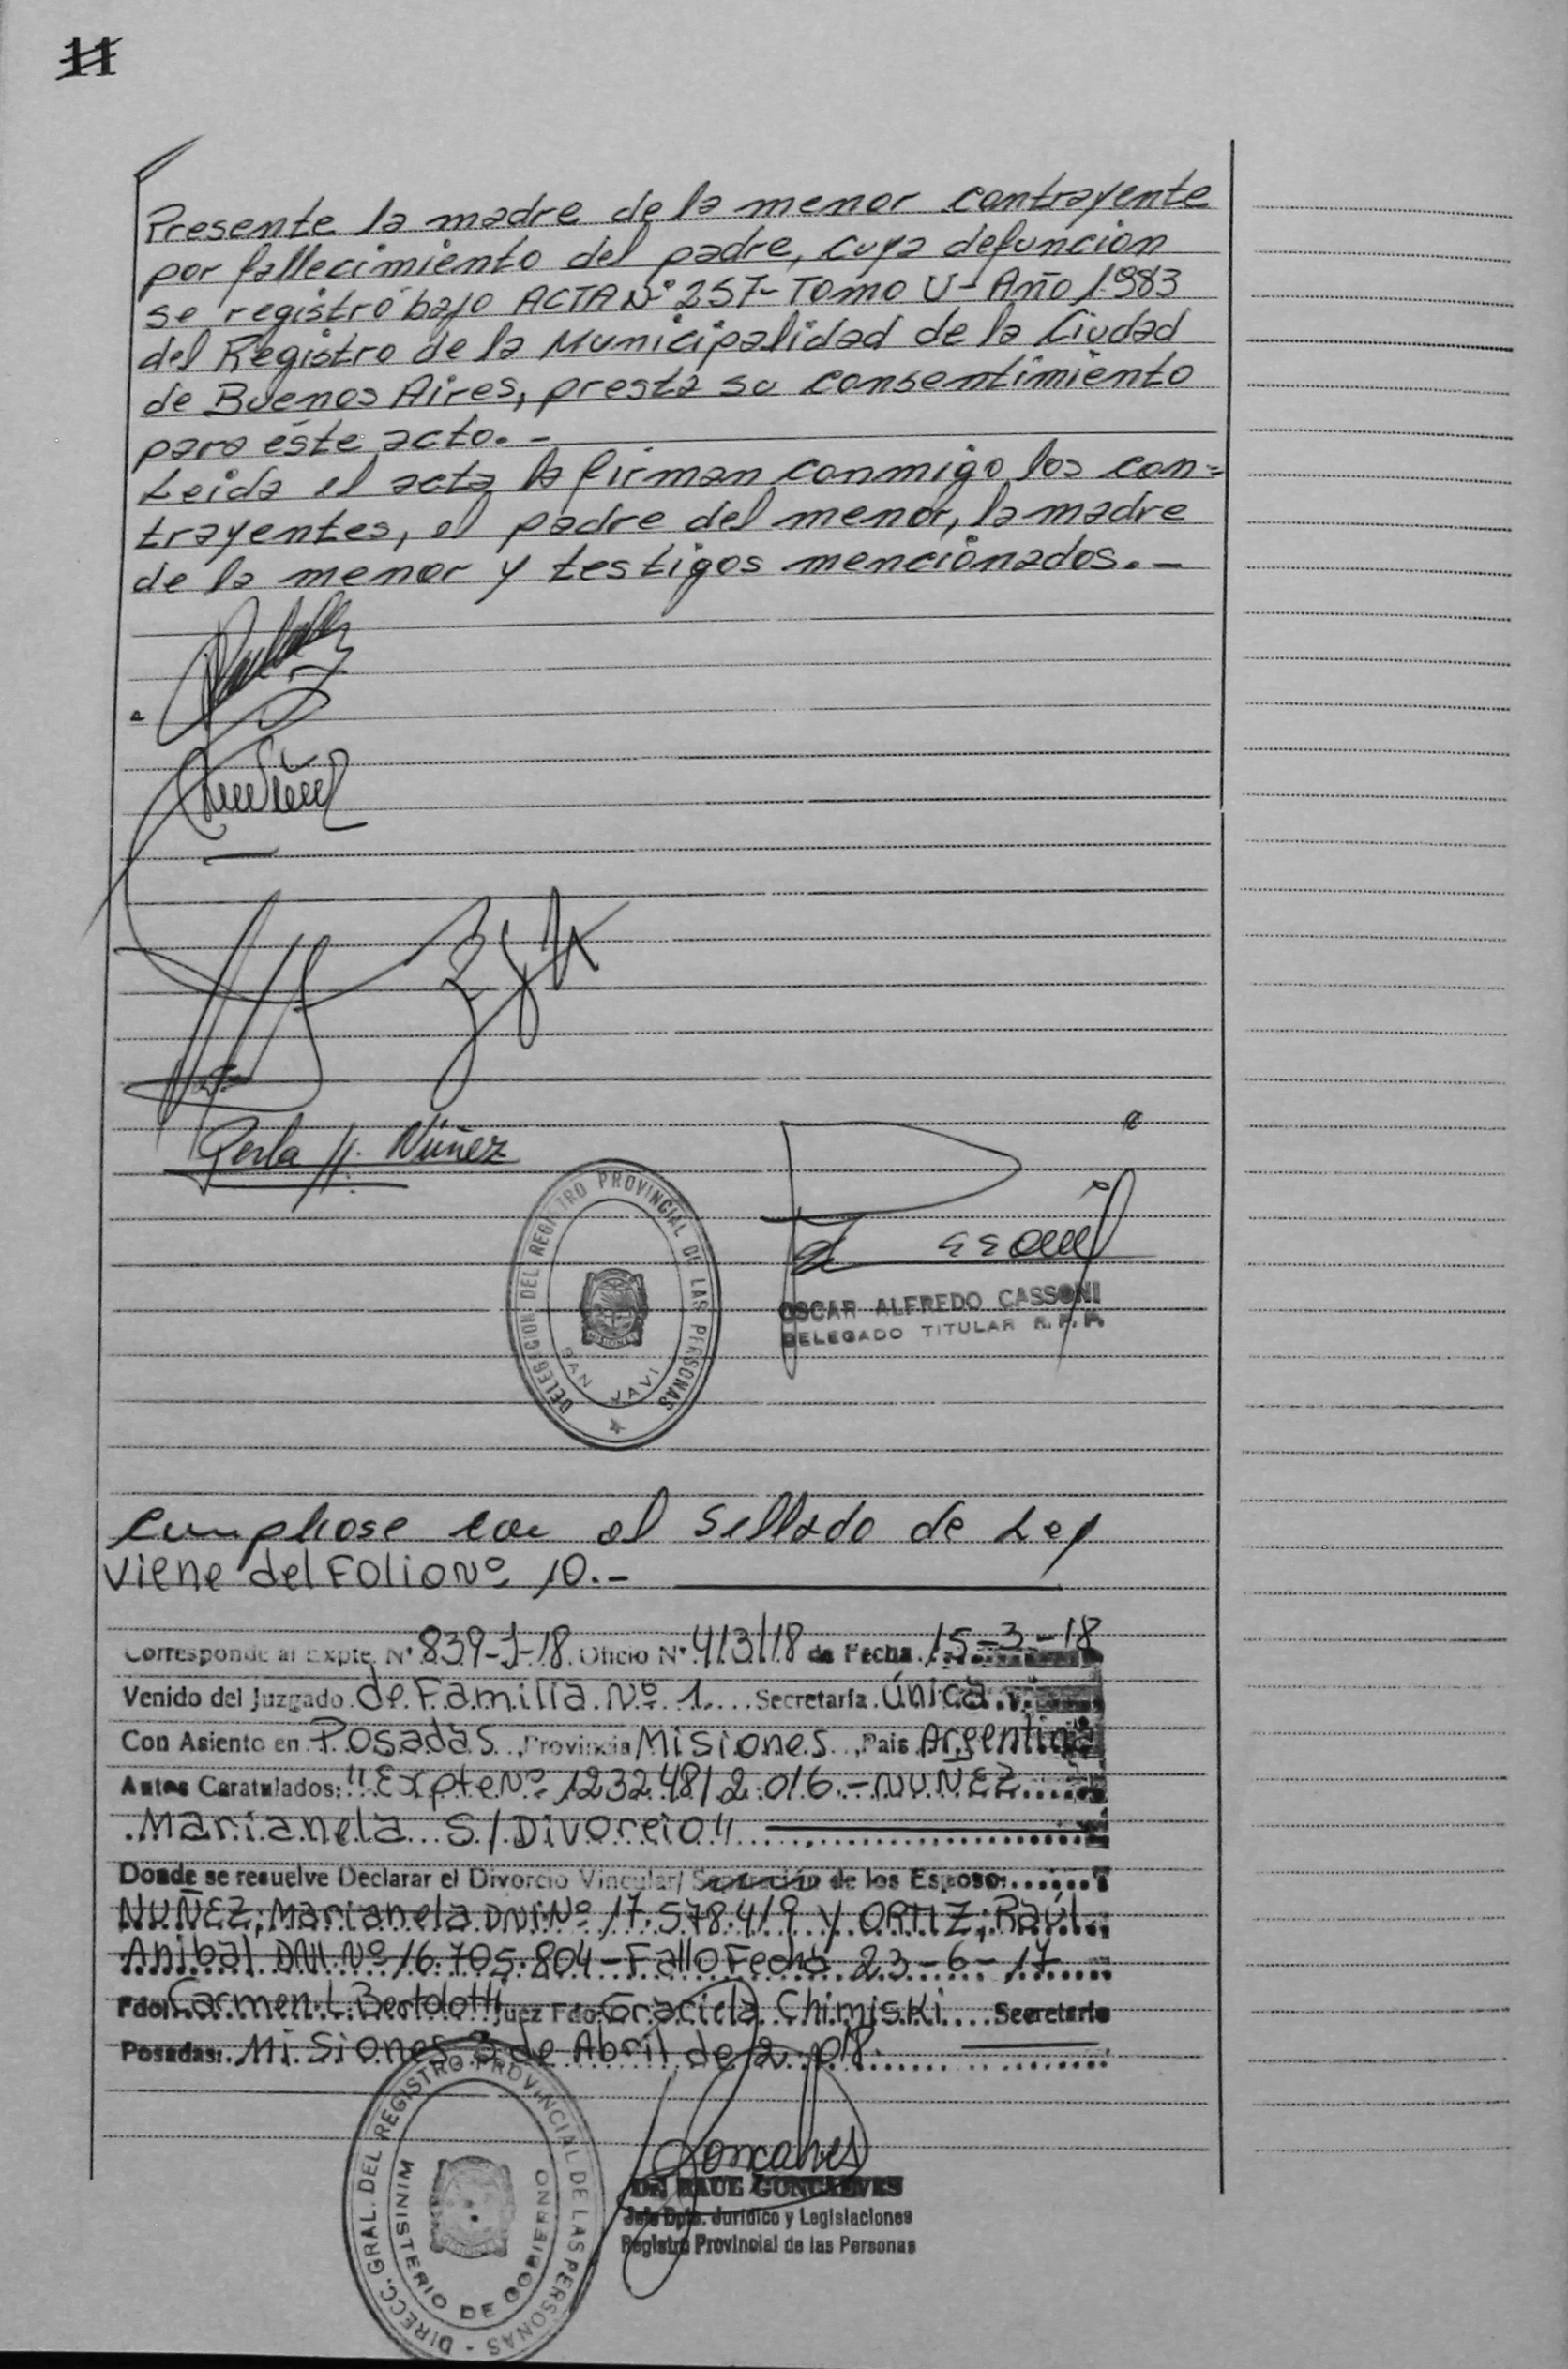 11
Presente la madre de la menor contrayente
por fallecimiento del padre, cuya defuncion
se registró bajo ACTA Nº 257- Tomo U- Año 1983
del Registro de la Municipalidad de la Ciudad
de Buenos Aires, presta su consentimiento
para éste acto.-
Leida el acta la firman conmigo los con=
trayentes, el padre del menor, la madre
de la menor y testigos mencionados.-
Perla H. Núñez
DELEGACION DEL REGISTRO PROVINCIAL DE LAS PERSONAS
SAN JAVI
OSCAR ALFREDO CASSONI
DELEGADO TITULAR R. P. P.
Cumplase con el Sellado de Ley
Viene del Folio Nº 10.-
Corresponde al Expte. Nº 839-J-18 Oficio Nº 413/18 de Fecha 15-3-18
Venido del Juzgado de Familia Nº 1 Secretaría única
Con Asiento en Posadas, Provincia Misiones, Pais Argentina
Autos Caratulados: "Expte Nº 123248/2.016.- NUÑEZ
Marianela S/Divorcio"
Donde se resuelve Declarar el Divorcio Vincular/ Separación de los Esposos
NUÑEZ, Marianela DNI Nº 17.578.419 y ORTIZ, Raúl
Anibal DNI Nº 16.705.804-Fallo Fecha 23-6-17
Fdo. Carmen L. Bertolotti Juez Fdo. Graciela Chimiski Secretario
Posadas: Misiones 3 de Abril de 2.018.
DIRECC. GRAL. DEL REGISTRO PROVINCIAL DE LAS PERSONAS -
MINISTERIO DE GOBIERNO
Goncalves
Dr. RAUL GONCALVES
Jefe Dpto. Jurídico y Legislaciones
Registro Provincial de las Personas